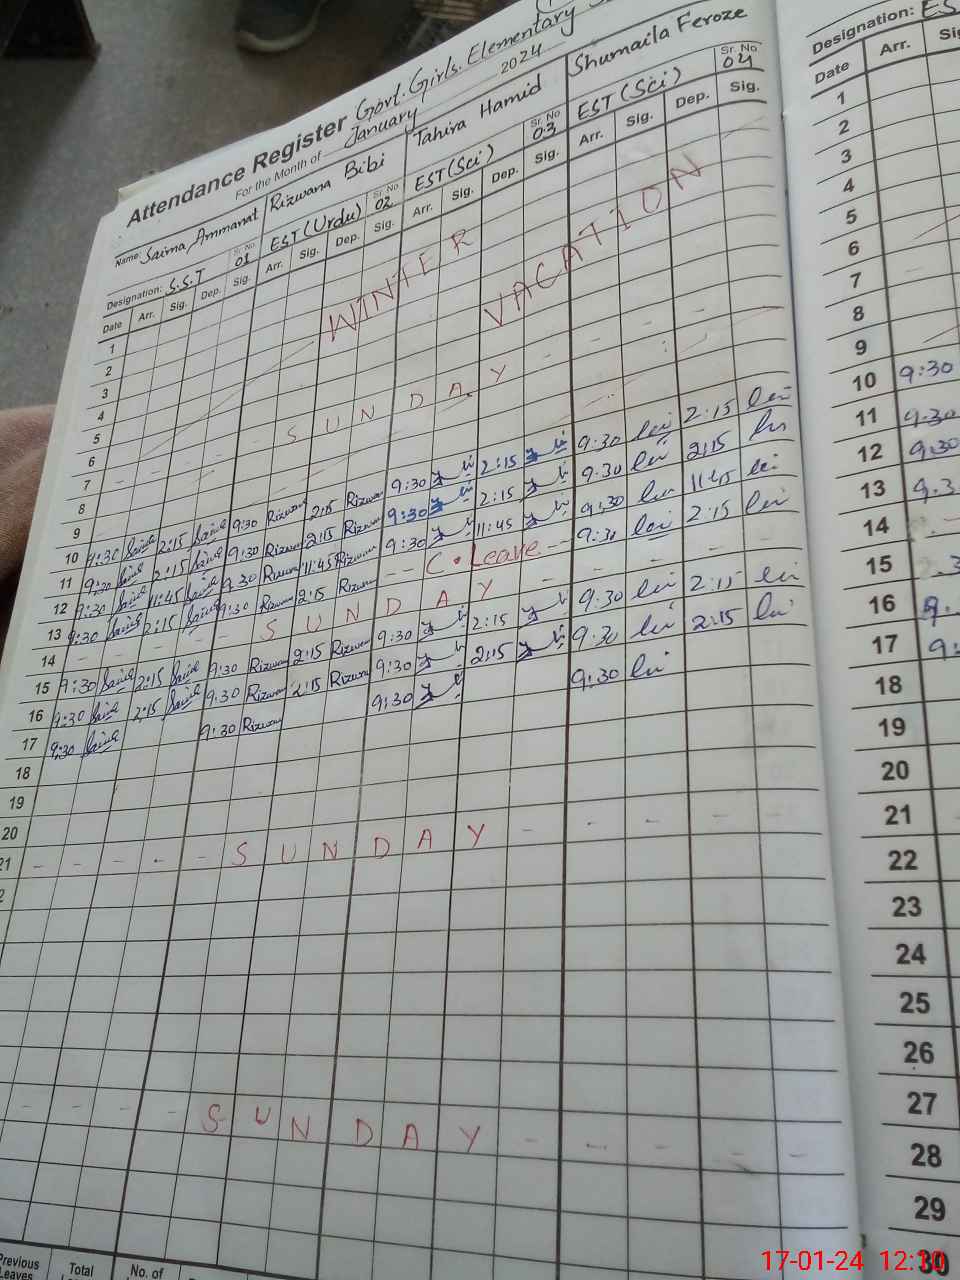 Attendance Register Govt: Girls. Elementary
For the Month of January 2024
Name: Saima Ammanat Rizwana Bibi Tahira Hamid Shumaila Feroze
Designation: S.S.T Sr. No 01 EST (Urdu) Sr. No 02 EST (Sci) Sr. No 03 EST (Sci) Sr. No 04
Date Arr. Sig. Dep. Sig. Arr. Sig. Dep. Sig. Arr. Sig. Dep. Sig. Arr. Sig. Dep. Sig.
1
2
3
WINTER VACATION
4
5
6
7 - - - - S U N D A Y - - - -
8
9
10 9:30 2:15 9:30 Rizwana 2:15 Rizwana 9:30 2:15 9:30 2:15
11 9:30 2:15 9:30 Rizwana 2:15 Rizwana 9:30 2:15 9:30 2:15
12 9:30 11:45 9:30 Rizwana 11:45 Rizwana 9:30 11:45 9:30 11:45
13 9:30 2:15 9:30 Rizwana 2:15 Rizwana -- C. Leave -- 9:30 2:15
14 - - - - S U N D A Y - - - - -
15 9:30 2:15 9:30 Rizwana 2:15 Rizwana 9:30 2:15 9:30 2:15
16 9:30 2:15 9:30 Rizwana 2:15 Rizwana 9:30 2:15 9:30 2:15
17 9:30 9:30 Rizwana 9:30 9:30
18
19
20
21 - - - - - S U N D A Y - - - - -
S U N D A Y
Previous Leaves Total No. of
Designation: EST
Date Arr. Sig.
1
2
3
4
5
6
7
8
9
10 9:30
11 9:30
12 9:30
13 9:3
14 -
15
16 9.
17 9:
18
19
20
21
22
23
24
25
26
27
28
29
30
17-01-24 12:10